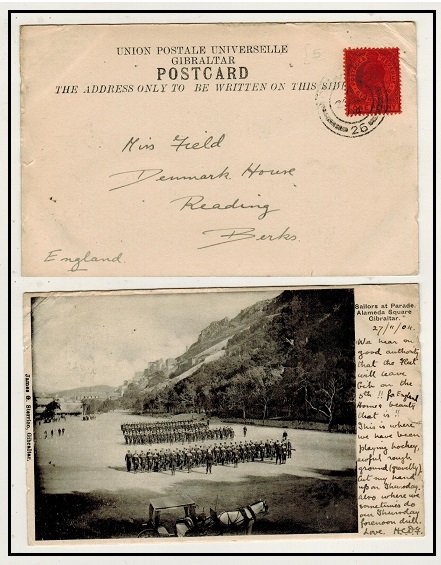 UNION POSTALE UNIVERSELLE
GIBRALTAR
POSTCARD
THE ADDRESS ONLY TO BE WRITTEN ON THIS SIDE
26
Miss Field
Denmark House
Reading
Berks.
England.
James G. Stanton, Gibraltar.
Sailors at Parade.
Alameda Square
Gibraltar.
27/11/04.
We hear on
good authority
that the Fleet
will leave
Gib on the
8th !! for England
Home & beauty
that is !!
This is where
we have been
playing hockey,
awful rough
ground (gravelly)
cut my hand
up on Thursday
also where we
sometimes do
our Thursday
forenoon drill.
Love